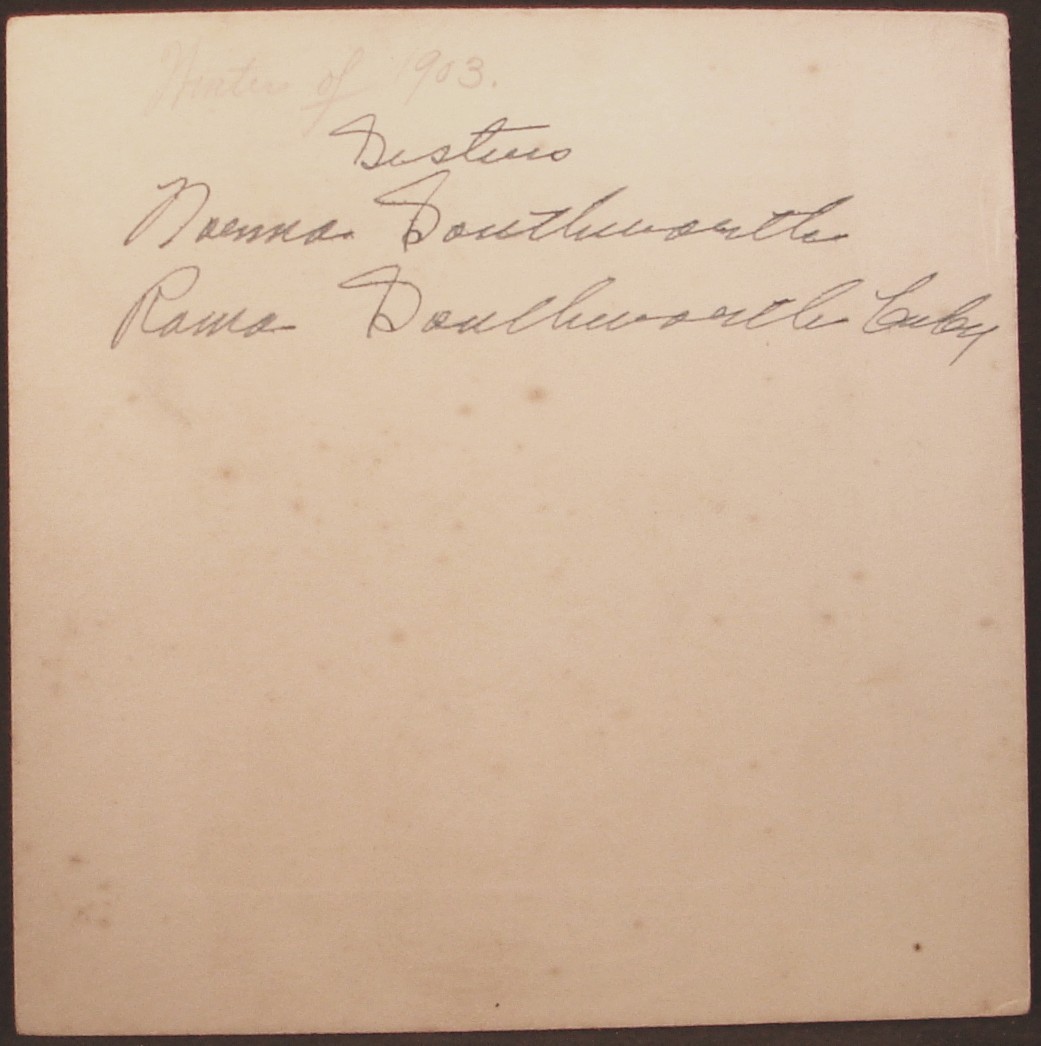 Winter of 1903.
Sisters
Norma Southworth
Roma Southworth